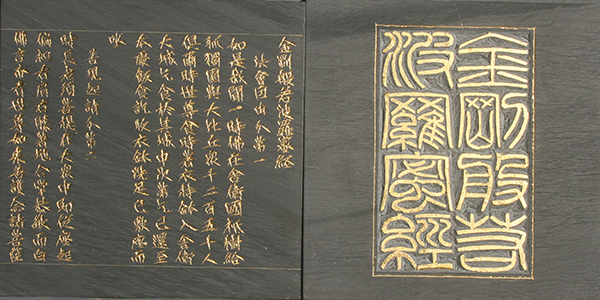 金剛般若
波羅蜜經
金剛般若波羅蜜經
法會因由分第一
如是我聞一時佛在舍衛國祇樹給
孤獨園與大比丘眾千二百五十人
俱爾時世尊食時著衣持鉢入舍衛
大城乞食於其城中次第乞已還至
本處飯食訖收衣鉢洗足已敷座而
坐
善現起請分第二
時長老須菩提在大眾中即從座起
偏袒右肩右膝著地合掌恭敬而白
佛言希有世尊如來善護念諸菩薩